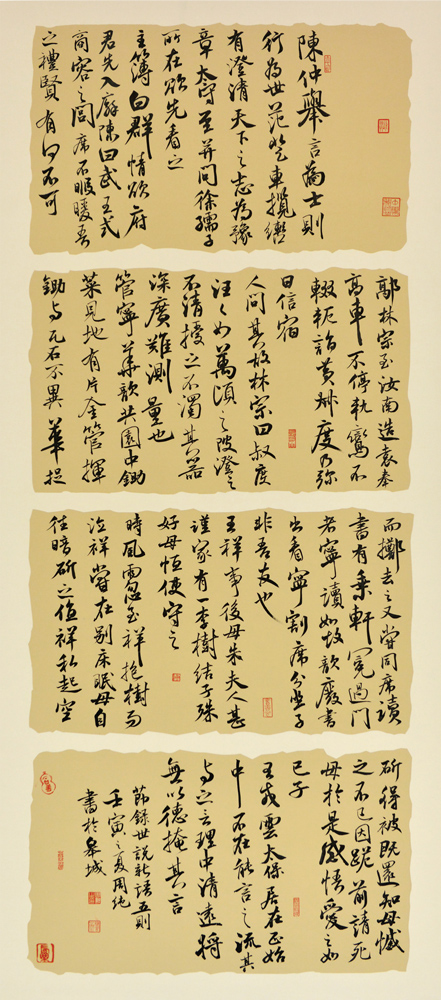 陳仲舉言為士則
行為世范登車攬轡
有澄清天下之志為豫
章太守至并問徐孺子
所在欲先看之
主簿白群情欲府
君先入廨陳曰武王式
商容之閭席不暇暖吾
之禮賢有何不可
郭林宗至汝南造袁奉
高車不停軌鸞不
輟軛詣黃叔度乃弥
日信宿
人問其故林宗曰叔度
汪汪如萬頃之陂澄之
不清擾之不濁其器
深廣難測量也
管寧華歆共園中鋤
菜見地有片金管揮
鋤与瓦石不異華捉
而擲去之又嘗同席讀
書有乘軒冕過門
者寧讀如故歆廢書
出看寧割席分坐子
非吾友也
王祥事後母朱夫人甚
謹家有一李樹結子殊
好母恒使守之
時風雨忽至祥抱樹而
泣祥嘗在別床眠母自
往暗斫之值祥私起空
斫得被既還知母憾
之不已因跪前請死
母於是感悟愛之如
己子
王戎雲太保居在正始
中不在能言之流其
与之言理中清遠將
無以德掩其言
節錄世說新語五則
壬寅之夏周純
書於皋城